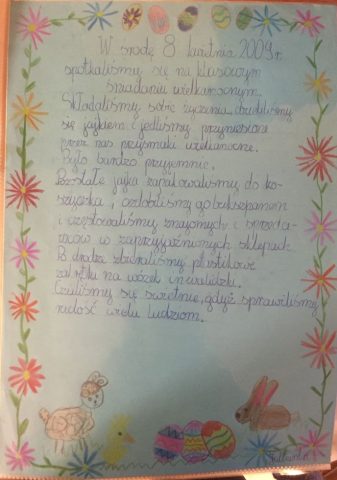 W środę 8 kwietnia 2009 r.
spotkaliśmy się na klasowym
śniadaniu wielkanocnym.
Składaliśmy sobie życzenia, dzieliliśmy
się jajkiem i jedliśmy przyniesione
przez nas przysmaki wielkanocne.
Było bardzo przyjemnie.
Pozostałe jajka zapakowaliśmy do ko-
szyczka, ozdobiliśmy go bukszpanem
i częstowaliśmy znajomych i sprzeda-
wców w zaprzyjaźnionych sklepach.
W drodze zbieraliśmy plastikowe
zakrętki na wózek inwalidzki.
Czuliśmy się świetnie, gdyż sprawiliśmy
radość wielu ludziom.